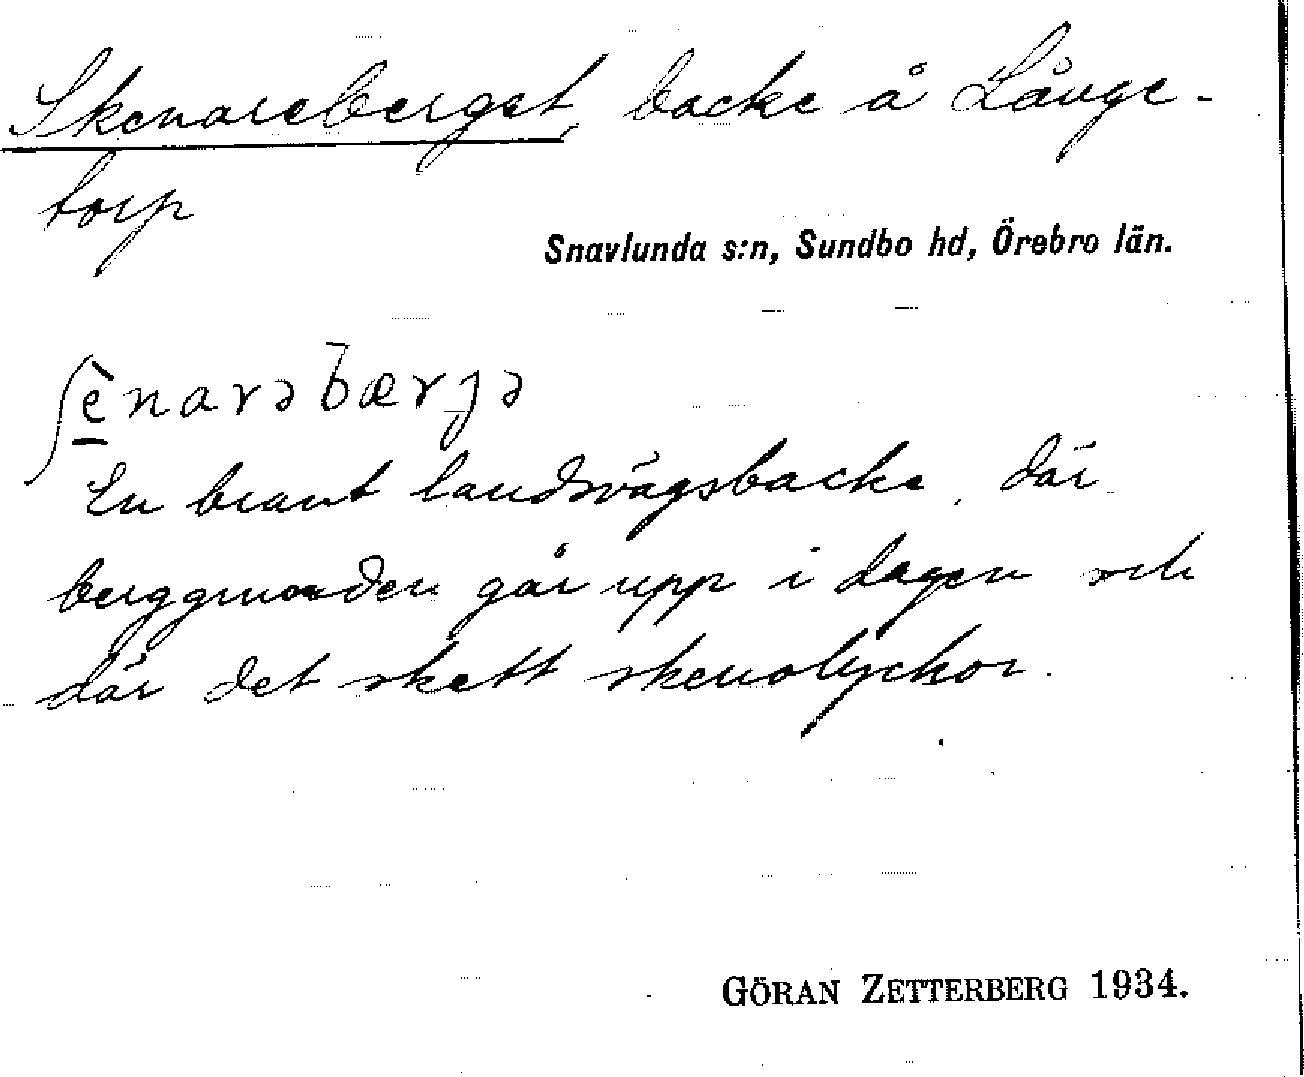 Skenareberget, backe å Långe-
torp
Snavlunda s:n, Sundbo hd, Örebro län.
ʃènarəbærɟə
En brant landsvägsbacke, där
berggrunden går upp i dagen och
där det skett skenolyckor.
GÖRAN ZETTERBERG 1934.